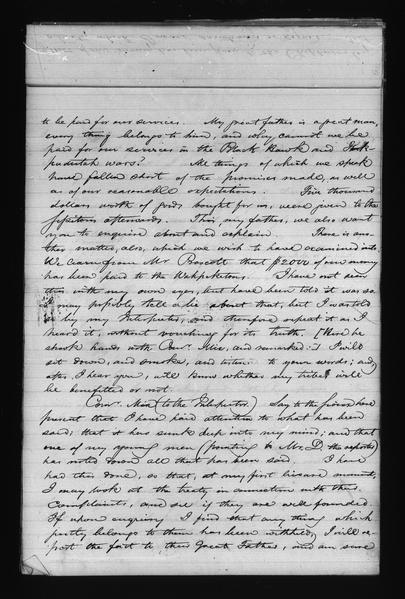 to be paid for our services. My great father is a great man,
every thing belongs to him, and why cannot we be
paid for our services in the Black Hawk and Ink-
padutah wars? All things of which we speak
have fallen short of the promises made, as well
as of our reasonable expectations. Five thousand
dollars worth of goods bought for us, were given to the
afterwards. This, my father, we also want
you to enquire about and explain. There is ano-
ther matter, also, which we wish to have examined into.
We learn from Mr Prescott that $2000 of our money
has been paid to the Wahpetons. I have not seen
this with my own eyes, but have been told it was so
I may possibly tell a lie about that, but I was told
so by my Interpreter, and therefore repeat it as I
heard it, without vouching for its truth. [Here he
shook hands with Com. Mix, and remarked:] I will
sit down, and smoke, and listen to your words; and
after I hear you, will know whether my tribe will
be benefitted or not.
Com. Mix (to the Interpreter.) Say to the Indians here
present that I have paid attention to what has been
said; that it has sunk deep into my mind; and that
one of my young men (pointing to Mr. D. the reporter)
has noted down all that has been said. I have
had this done, so that, at my first leisure moment,
I may look at the treaty in connection with these
complaints, and see if they are well founded.
If upon enquiry I find that any thing which
justly belongs to them has been withheld, I will re-
port the fact to their Great Father, and am sure